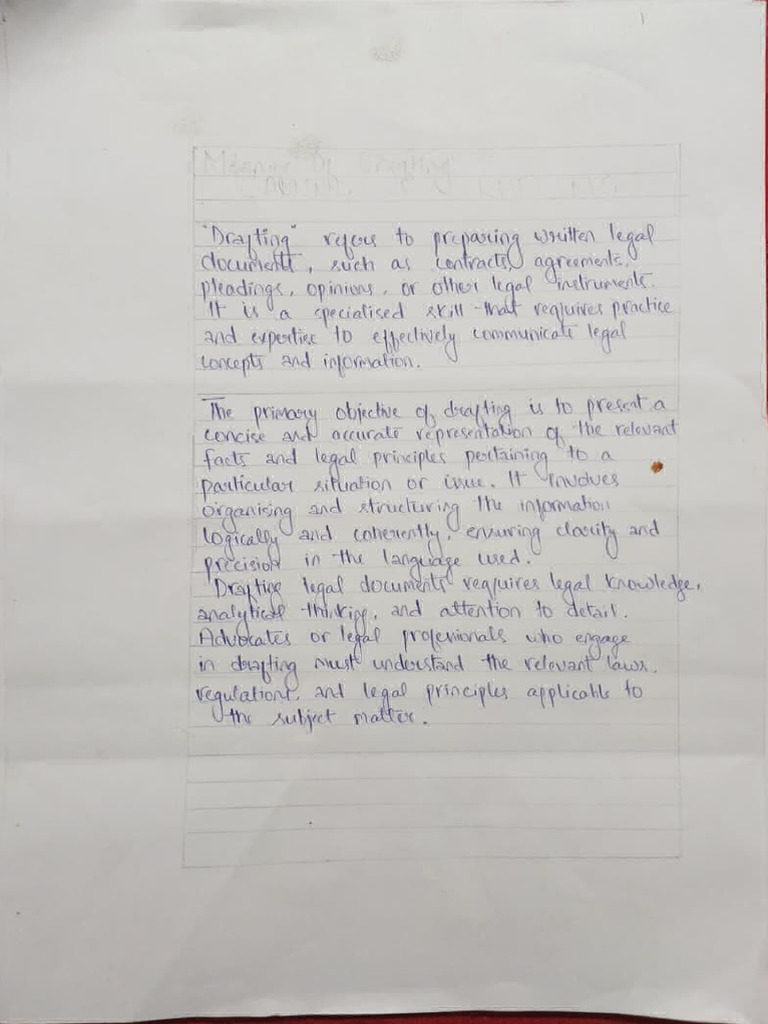 "Drafting" refers to preparing written legal
documents, such as contracts, agreements,
pleadings, opinions, or other legal instruments.
It is a specialised skill that requires practice
and expertise to effectively communicate legal
concepts and information.
The primary objective of drafting is to present a
concise and accurate representation of the relevant
facts and legal principles pertaining to a
particular situation or issue. It involves
organising and structuring the information
logically and coherently, ensuring clarity and
precision in the language used.
Drafting legal documents requires legal knowledge,
analytical thinking, and attention to detail.
Advocates or legal professionals who engage
in drafting must understand the relevant laws,
regulations, and legal principles applicable to
the subject matter.